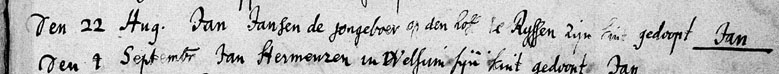 Den 22 Aug. Jan Jansen de jongeboer op den Hoff te Ryssen zijn kint gedoopt Jan
Den 1 Septembr Jan Hermenzen in Welsum sijn kint gedoopt Jan